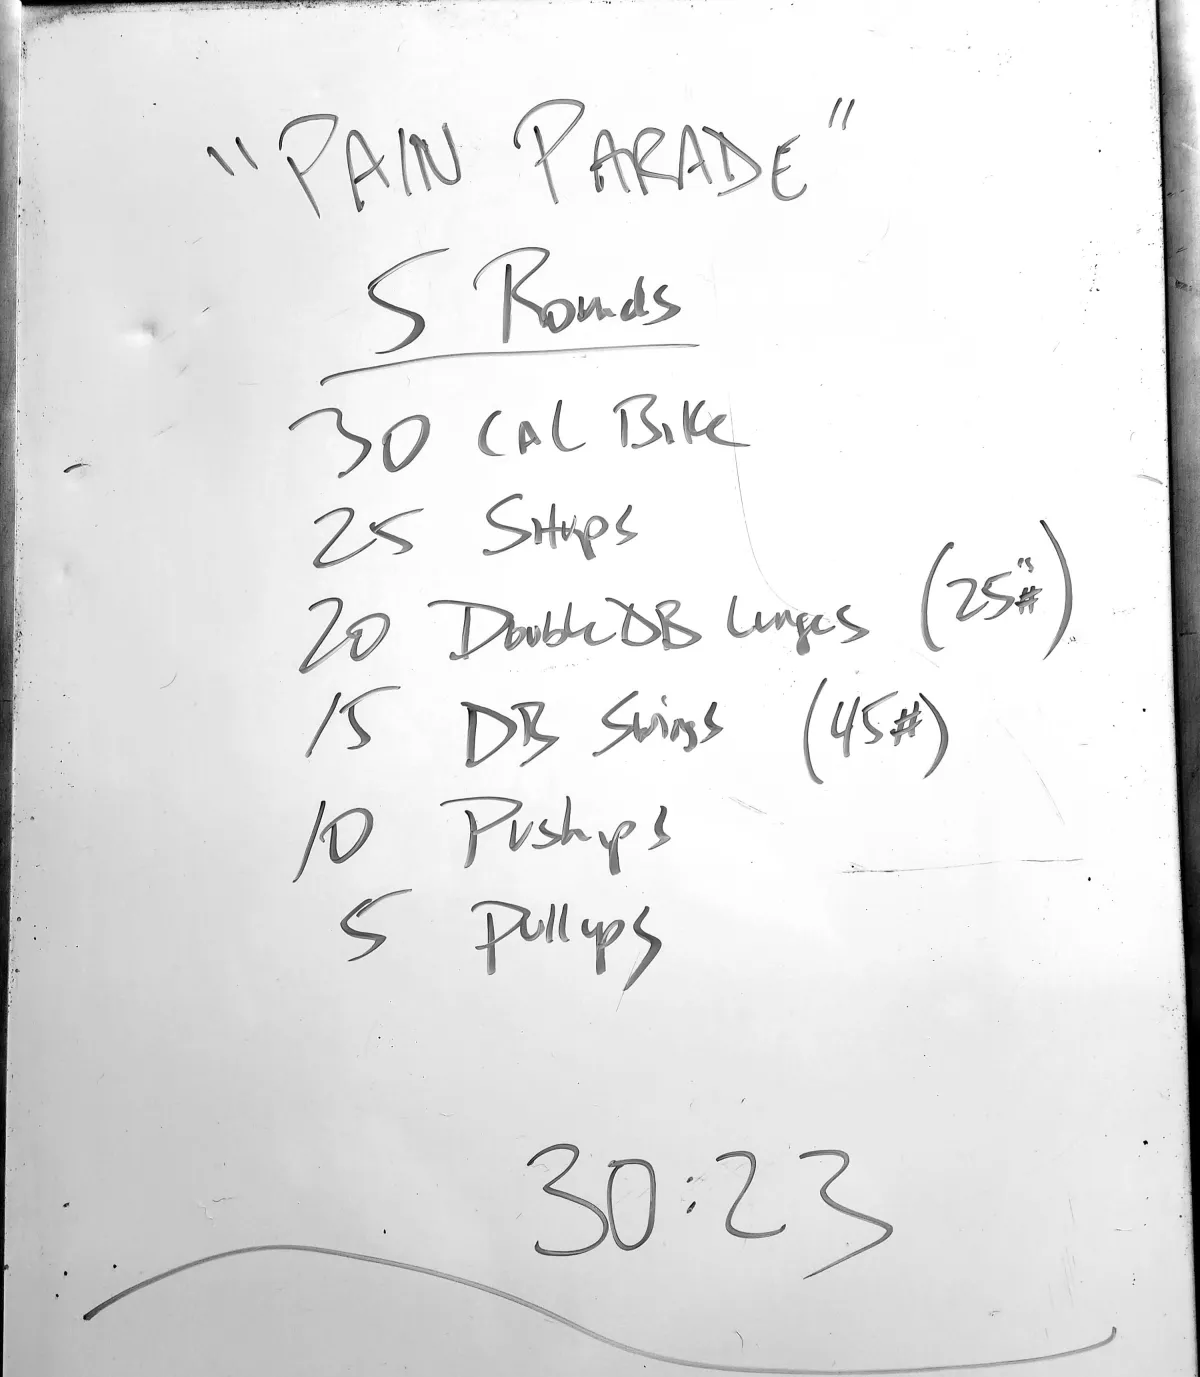 "PAIN PARADE"
5 Rounds
30 CAL Bike
25 Situps
20 Double DB Lunges (25#'s)
15 DB Swings (45#)
10 Pushups
5 Pullups
30:23